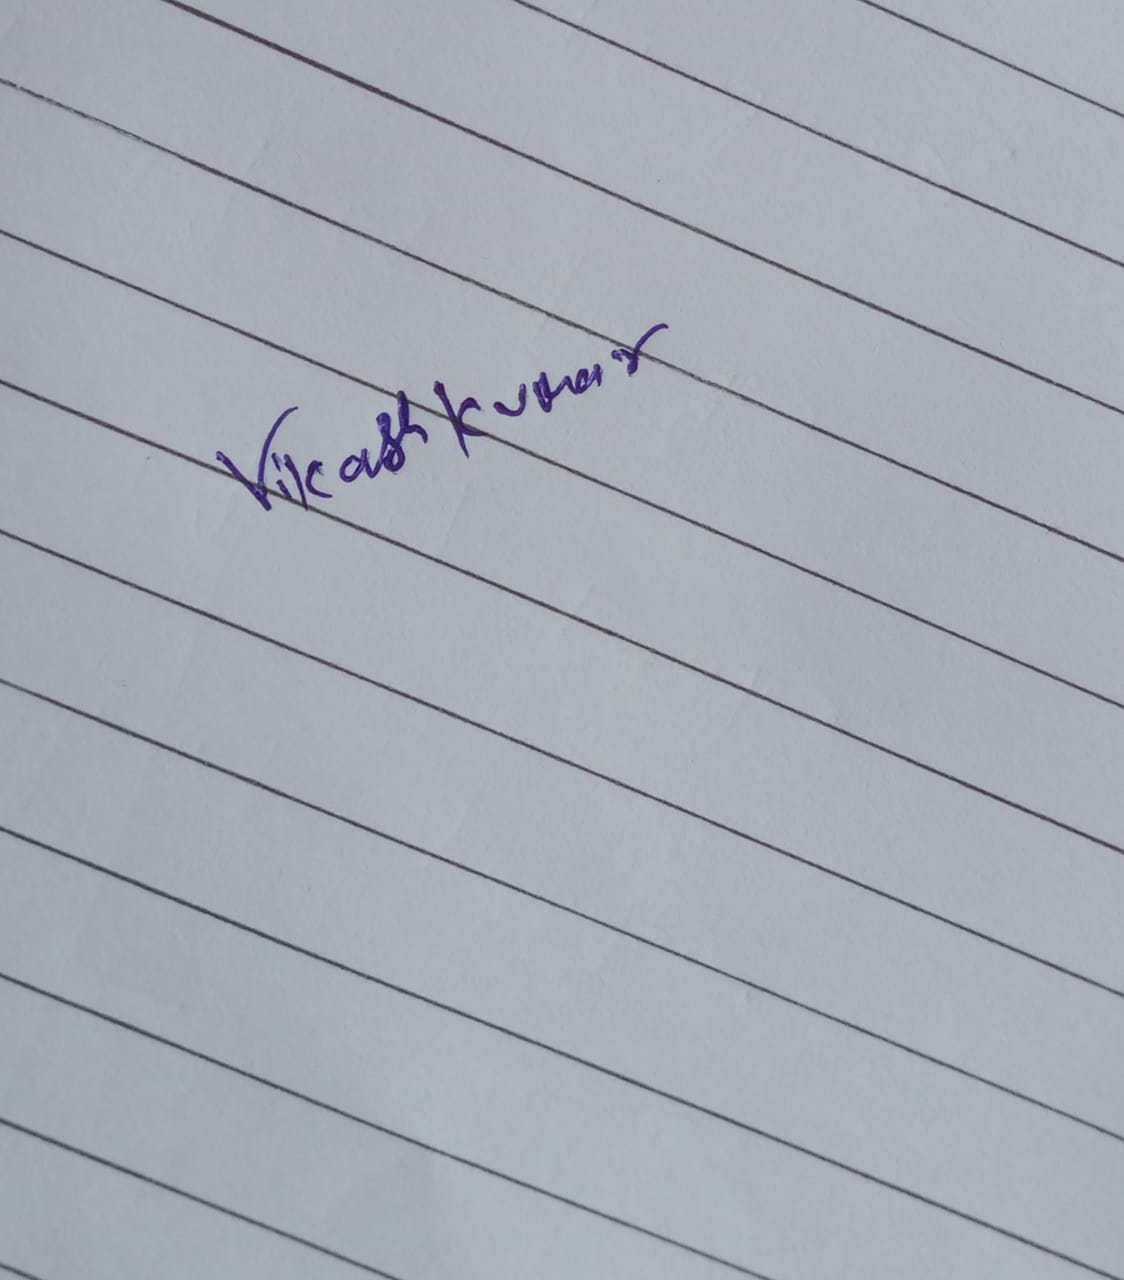 Vikash kumar